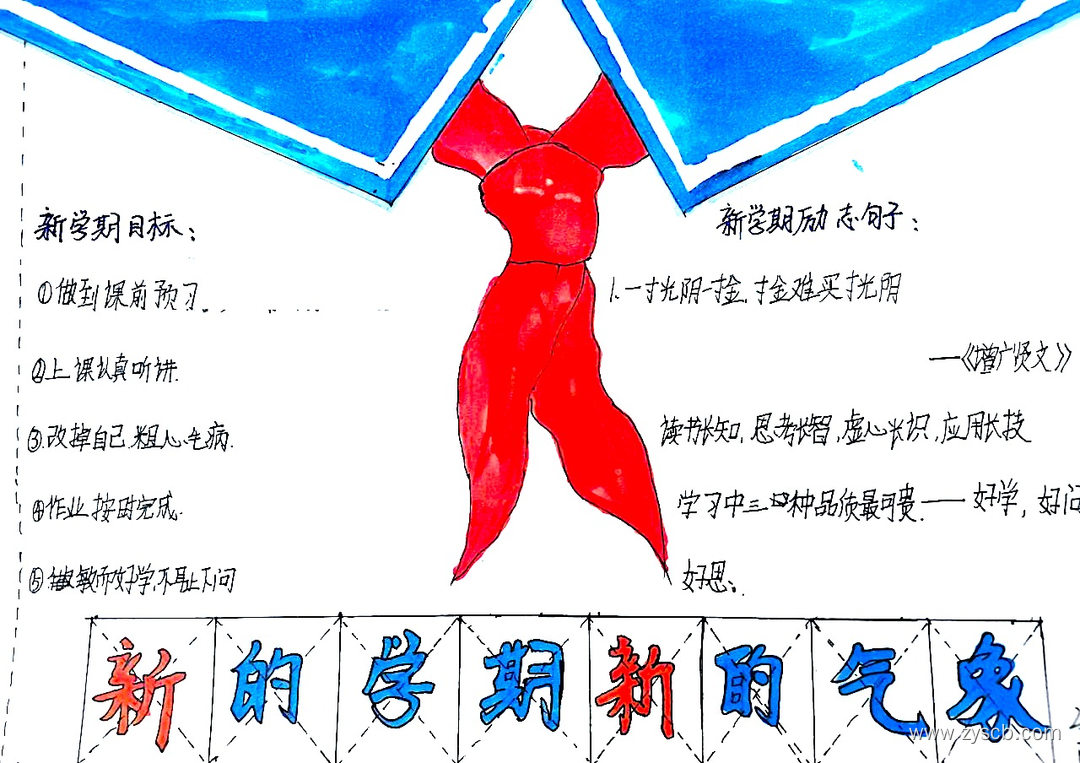 新学期目标：
①做到课前预习.
②上课认真听讲.
③改掉自己粗心毛病.
④作业按时完成.
⑤敏而好学,不耻下问
新学期励志句子：
1.一寸光阴一寸金,寸金难买寸光阴
—《增广贤文》
读书长知,思考长智,虚心长识,应用长技
学习中三种品质最可贵.——好学，好问
好思。
新的学期新的气象
www.zyscb.com